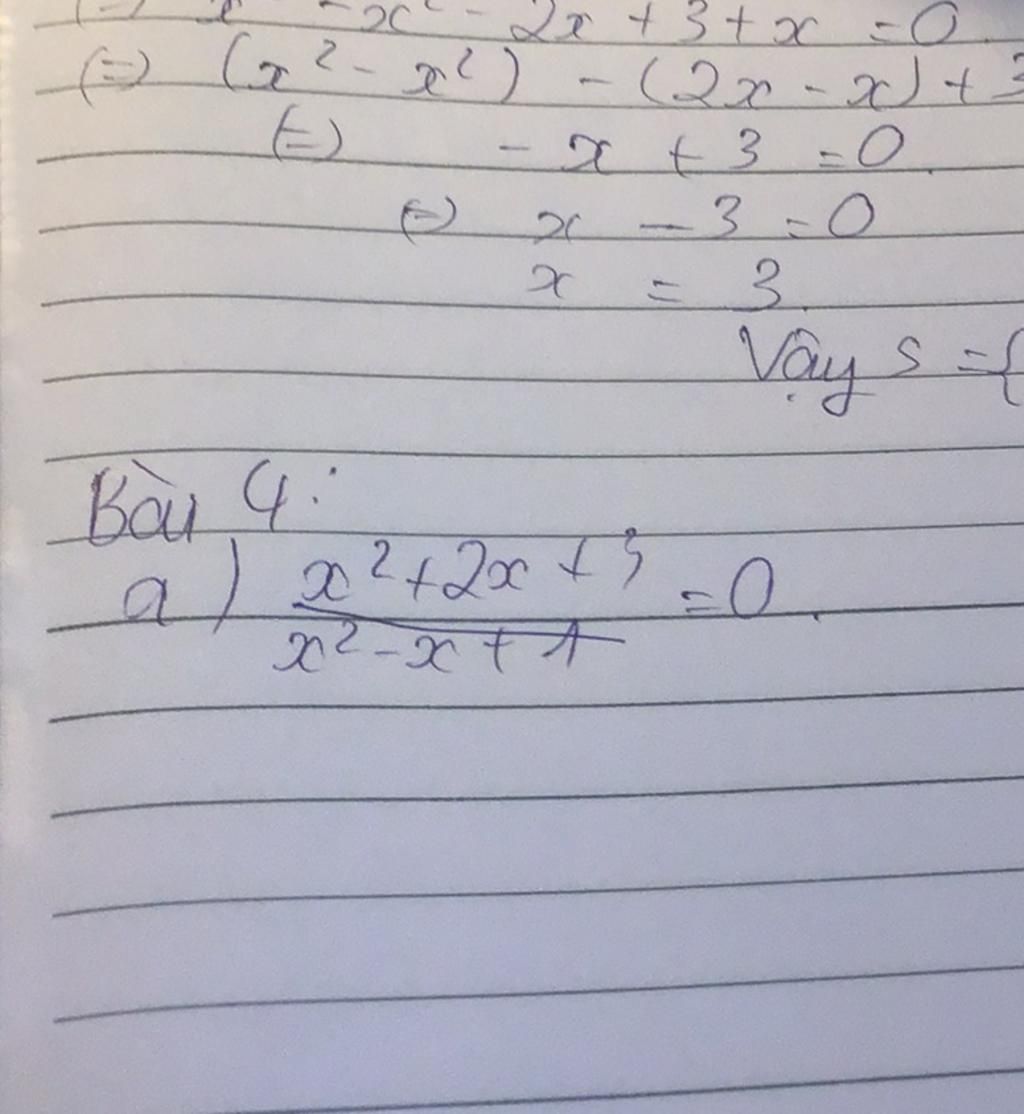 (=) x² - x² - 2x + 3 + x = 0
(=) (x² - x²) - (2x - x) + 3
(=) - x + 3 = 0
(=) x - 3 = 0
x = 3
Vậy S = {
Bài 4:
a) \frac{x² + 2x + 3}{x² - x + 1} = 0